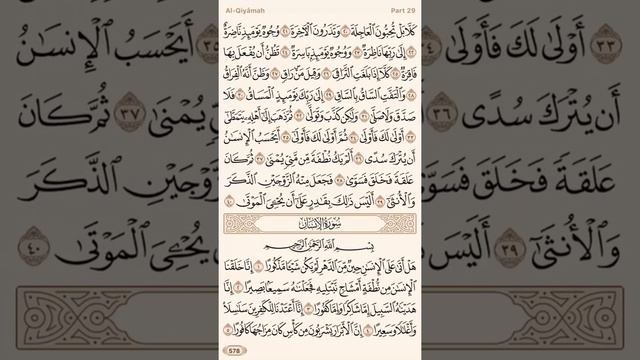 Al-Qiyâmah
Part 29
كَلَّا بَلْ تُحِبُّونَ ٱلْعَاجِلَةَ ٢٠ وَتَذَرُونَ ٱلْأَخِرَةَ ٢١ وُجُوهٌ يَوْمَئِذٍ نَّاضِرَةٌ
٢٢ إِلَىٰ رَبِّهَا نَاظِرَةٌ ٢٣ وَوُجُوهٌ يَوْمَئِذٍۭ بَاسِرَةٌ ٢٤ تَظُنُّ أَن يُفْعَلَ بِهَا
فَاقِرَةٌ ٢٥ كَلَّآ إِذَا بَلَغَتِ ٱلتَّرَاقِيَ ٢٦ وَقِيلَ مَنْ رَاقٍ ٢٧ وَظَنَّ أَنَّهُ ٱلْفِرَاقُ
٢٨ وَٱلْتَفَّتِ ٱلسَّاقُ بِٱلسَّاقِ ٢٩ إِلَىٰ رَبِّكَ يَوْمَئِذٍ ٱلْمَسَاقُ ٣٠ فَلَا
صَدَّقَ وَلَا صَلَّىٰ ٣١ وَلَٰكِن كَذَّبَ وَتَوَلَّىٰ ٣٢ ثُمَّ ذَهَبَ إِلَىٰٓ أَهْلِهِۦ يَتَمَطَّىٰٓ
٣٣ أَوْلَىٰ لَكَ فَأَوْلَىٰ ٣٤ ثُمَّ أَوْلَىٰ لَكَ فَأَوْلَىٰٓ ٣٥ أَيَحْسَبُ ٱلْإِنسَٰنُ
أَن يُتْرَكَ سُدًى ٣٦ أَلَمْ يَكُ نُطْفَةً مِّن مَّنِىٍّ يُمْنَىٰ ٣٧ ثُمَّ كَانَ
عَلَقَةً فَخَلَقَ فَسَوَّىٰ ٣٨ فَجَعَلَ مِنْهُ ٱلزَّوْجَيْنِ ٱلذَّكَرَ
وَٱلْأُنثَىٰٓ ٣٩ أَلَيْسَ ذَٰلِكَ بِقَٰدِرٍ عَلَىٰٓ أَن يُحْـِۧىَ ٱلْمَوْتَىٰ ٤٠
سُورَةُ ٱلْإِنسَانِ
بِسْمِ ٱللَّهِ ٱلرَّحْمَٰنِ ٱلرَّحِيمِ
هَلْ أَتَىٰ عَلَى ٱلْإِنسَٰنِ حِينٌ مِّنَ ٱلدَّهْرِ لَمْ يَكُن شَيْـًٔا مَّذْكُورًا ١ إِنَّا خَلَقْنَا
ٱلْإِنسَٰنَ مِن نُّطْفَةٍ أَمْشَاجٍ نَّبْتَلِيهِ فَجَعَلْنَٰهُ سَمِيعًۢا بَصِيرًا ٢ إِنَّا
هَدَيْنَٰهُ ٱلسَّبِيلَ إِمَّا شَاكِرًا وَإِمَّا كَفُورًا ٣ إِنَّآ أَعْتَدْنَا لِلْكَٰفِرِينَ سَلَٰسِلَا۟
وَأَغْلَٰلًا وَسَعِيرًا ٤ إِنَّ ٱلْأَبْرَارَ يَشْرَبُونَ مِن كَأْسٍ كَانَ مِزَاجُهَا كَافُورًا ٥
578
٣٣ أَوْلَىٰ لَكَ فَأَوْلَىٰ
٣٥ أَيَحْسَبُ ٱلْإِنسَٰنُ
أَن يُتْرَكَ سُدًى ٣٦
يُمْنَىٰ ٣٧ ثُمَّ كَانَ
عَلَقَةً فَخَلَقَ فَسَوَّ
زَّوْجَيْنِ ٱلذَّكَرَ
وَٱلْأُنثَىٰٓ ٣٩ أَلَيْسَ
يُحْـِۧىَ ٱلْمَوْتَىٰ ٤٠